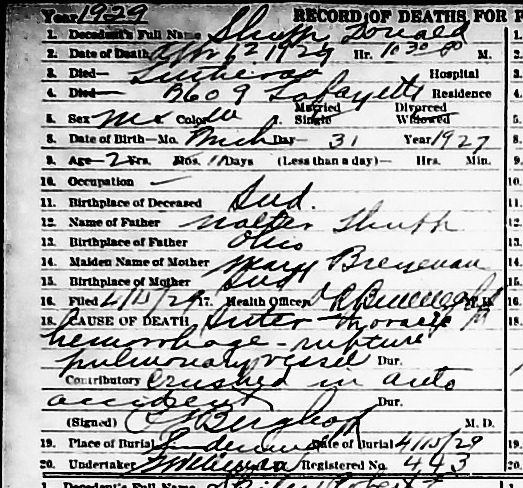 Year 1929 RECORD OF DEATHS, FOR
1. Decedent's Full Name Shupp Donald
2. Date of Death Apr 12 1929 Hr. 10 30 M.
3. Died— Lutheran Hospital
4. Died— Lafayette Residence
5. Sex Color Married Single Divorced Widowed
8. Date of Birth—Mo. Mch Day 31 Year 1927
9. Age 2 Yrs. Mos. 11 Days (Less than a day)— Hrs. Min.
10. Occupation —
11. Birthplace of Deceased Ind.
12. Name of Father Walter Shupp
13. Birthplace of Father Ohio
14. Maiden Name of Mother Mary Breneman
15. Birthplace of Mother Ind
16. Filed 4/15/29 17. Health Officer M.D.
18. CAUSE OF DEATH Inter Thoracic
hemorrhage - rupture
pulmonary vessel Dur.
Contributory Crushed in auto
accident Dur.
(Signed) Berghoff M. D.
19. Place of Burial Lindenwood Date of Burial 4/15/29
20. Undertaker Registered No. 443
1. Decedent's Full Name Robert